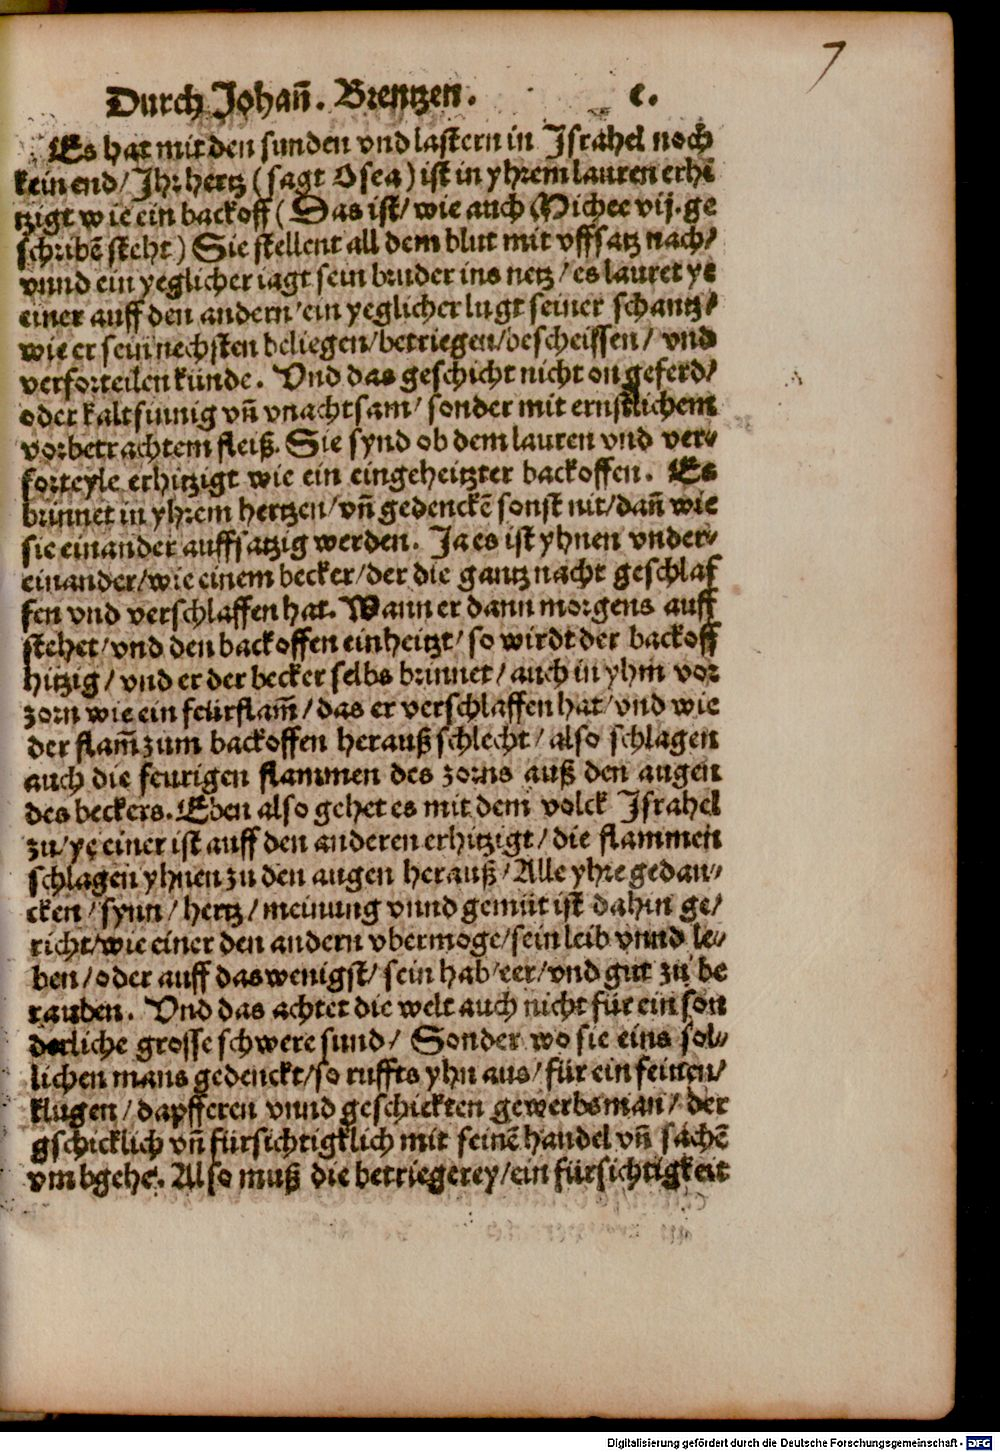 7
Durch Johañ. Brentzen. c.
Es hat mit den sunden vnd lastern in Jsrahel noch
kein end/ Jhr hertz (sagt Osea) ist in yhrem lauren erhi
tzigt wie ein backoff (Das ist/ wie auch Michee vij. ge
schribẽ steht) Sie stellent all dem blut mit vffsatz nach/
vnnd ein yeglicher iagt sein bruder ins netz/ es lauret ye
einer auff den andern/ ein yeglicher lugt seiner schantz/
wie er sein nechsten beliegen/ betriegen/ bescheissen/ vnd
verforteilen künde. Vnd das geschicht nicht on geferd/
oder kaltsinnig vñ vnachtsam/ sonder mit ernstlichem
vorbetrachtem fleiß. Sie synd ob dem lauren vnd ver-
forteyle erhitzigt wie ein eingeheitzter backoffen. Es
brinnet in yhrem hertzen/ vñ gedenckẽ sonst nit/ dañ wie
sie einander auffsatzig werden. Ja es ist yhnen vnder-
einander/ wie einem becker/ der die gantz nacht geschlaf
fen vnd verschlaffen hat. Wann er dann morgens auff
stehet/ vnd den backoffen einheitzt/ so wirdt der backoff
hitzig/ vnd er der becker selbs brinnet/ auch in yhm vor
zorn wie ein feürflam̃/ das er verschlaffen hat/ vnd wie
der flam̃ zum backoffen herauß schlecht/ also schlagen
auch die feurigen flammen des zorns auß den augen
des beckers. Eben also gehet es mit dem volck Jsrahel
zu/ ye einer ist auff den anderen erhitzigt/ die flammen
schlagen yhnen zu den augen herauß/ Alle yhre gedan-
cken/ synn/ hertz/ meinung vnnd gemüt ist dahin ge/
richt/ wie einer den andern vbermoge/ sein leib vnnd le-
ben/ oder auff das wenigst/ sein hab/ eer/ vnd gut zů be
rauben. Vnd das achtet die welt auch nicht für ein son
derliche grosse schwere sund/ Sonder wo sie eins sol-
lichen mans gedenckt/ so ruffts yhn aus/ für ein feinen/
klugen/ dapfferen vnnd geschickten gewerbsman/ der
gschicklich vñ fürsichtigklich mit seinẽ handel vñ sachẽ
vmbgehe. Also muß die betriegerey/ ein fürsichtigkeit
Digitalisierung gefördert durch die Deutsche Forschungsgemeinschaft - DFG